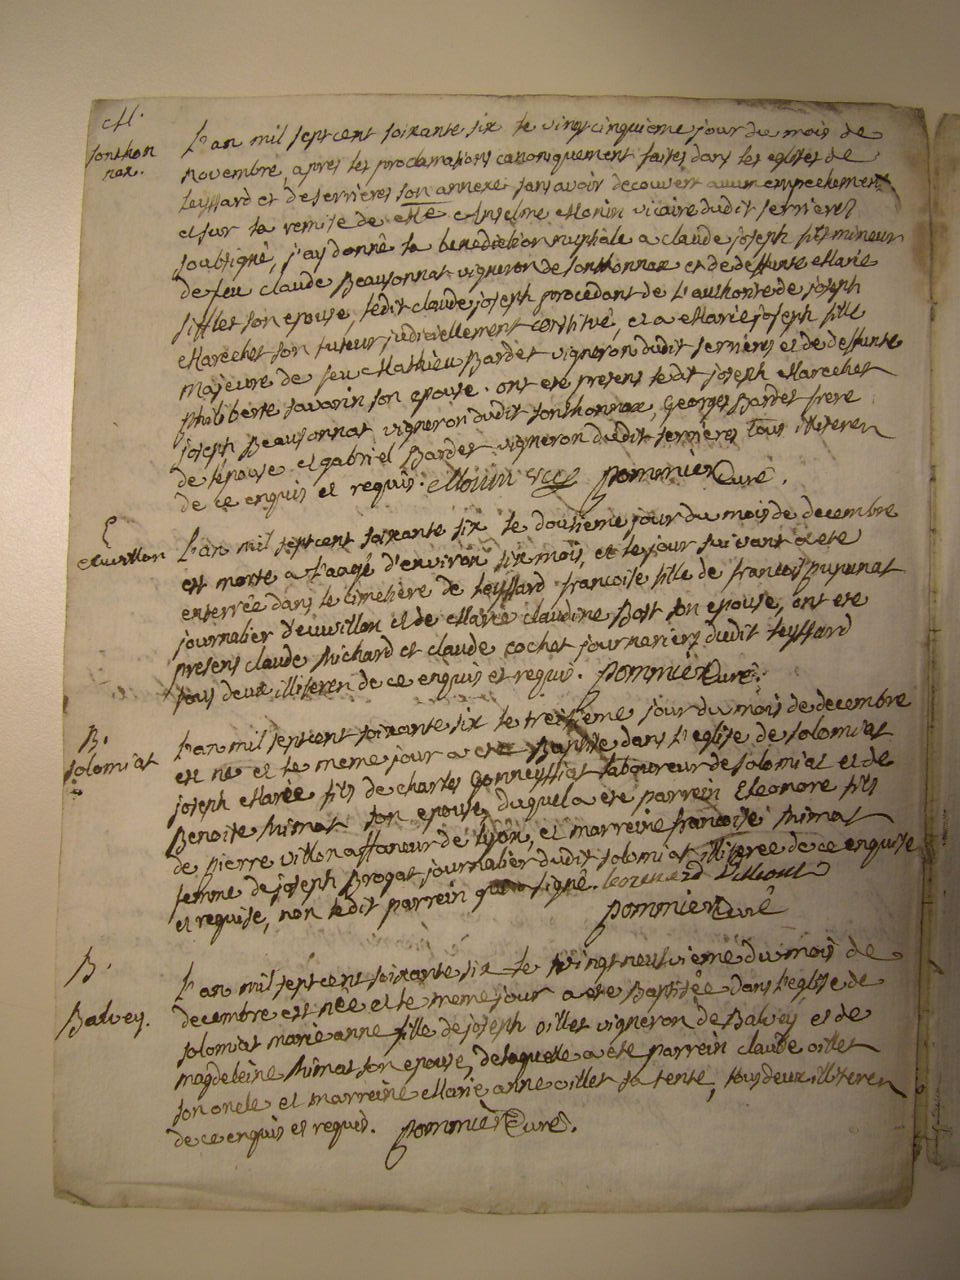 M.
sonthon
nax.
L'an mil sept cent soixante six le vingt cinquieme jour du mois de
novembre, apres les proclamations canoniquement faites dans les eglises de
leyssard et de serrieres son annexe sans avoir decouvert aucun empechement
et sur la remise de Mre Anselme Monin vicaire dudit serrieres
soubsigné, j'ay donné la benediction nuptiale a claude joseph fils mineur
de feu claude Beausonnat vigneron de sonthonnax et de deffunte Marie
sifflet son epouse, ledit claude joseph procedant de l'authorité de joseph
Marechet son tuteur judiciellement constitué, et a Marie joseph fille
majeure de feu Mathieu Bardet vigneron dudit serrieres et de deffunte
philiberte savarin son epouse. ont eté presens ledit joseph Marechet
joseph Beausonnat vigneron dudit sonthonnax, Georges Bardet frere
de l'epouse et gabriel Bardet vigneron dudit serrieres tous illiteres
de ce enquis et requis. Monin vic. pommier Curé.
E
euvillon
L'an mil sept cent soixante six le douzieme jour du mois de decembre
est morte a l'aagé d'environ six mois, et le jour suivant a eté
enterrée dans le cimetière de leyssard francoise fille de francois pupunat
journalier d'euvillon et de Marie claudine Bost son epouse, ont eté
presens claude Michard et claude cochet journaliers dudit leyssard
tous deux illiteres de ce enquis et requis. pommier Curé.
B.
solomiat
L'an mil sept cent soixante six le treizieme jour du mois de decembre
est né et le meme jour a eté Baptisé dans l'eglise de solomiat
joseph Marie fils de charles Gonneyssiat laboureur de solomiat et de
Benoite himat son epouse, duquel a eté parrein Eleonore fils
de pierre villon affaneur de lyon, et marreine francoise himat
femme de joseph Brogat journalier dudit solomiat illiteree de ce enquise
et requise, non ledit parrein qui a signé.
pommier Curé
B.
Balvey.
L'an mil sept cent soixante six le vingt neufvieme du mois de
decembre est née et le meme jour a eté Baptisée dans l'eglise de
solomiat marie anne fille de joseph oillet vigneron de Balvey et de
magdeleine himat son epouse, de laquelle a eté parrein claude oillet
son oncle et marreine Marie anne oillet sa tente, tous deux illiteres
de ce enquis et requis. pommier Curé.